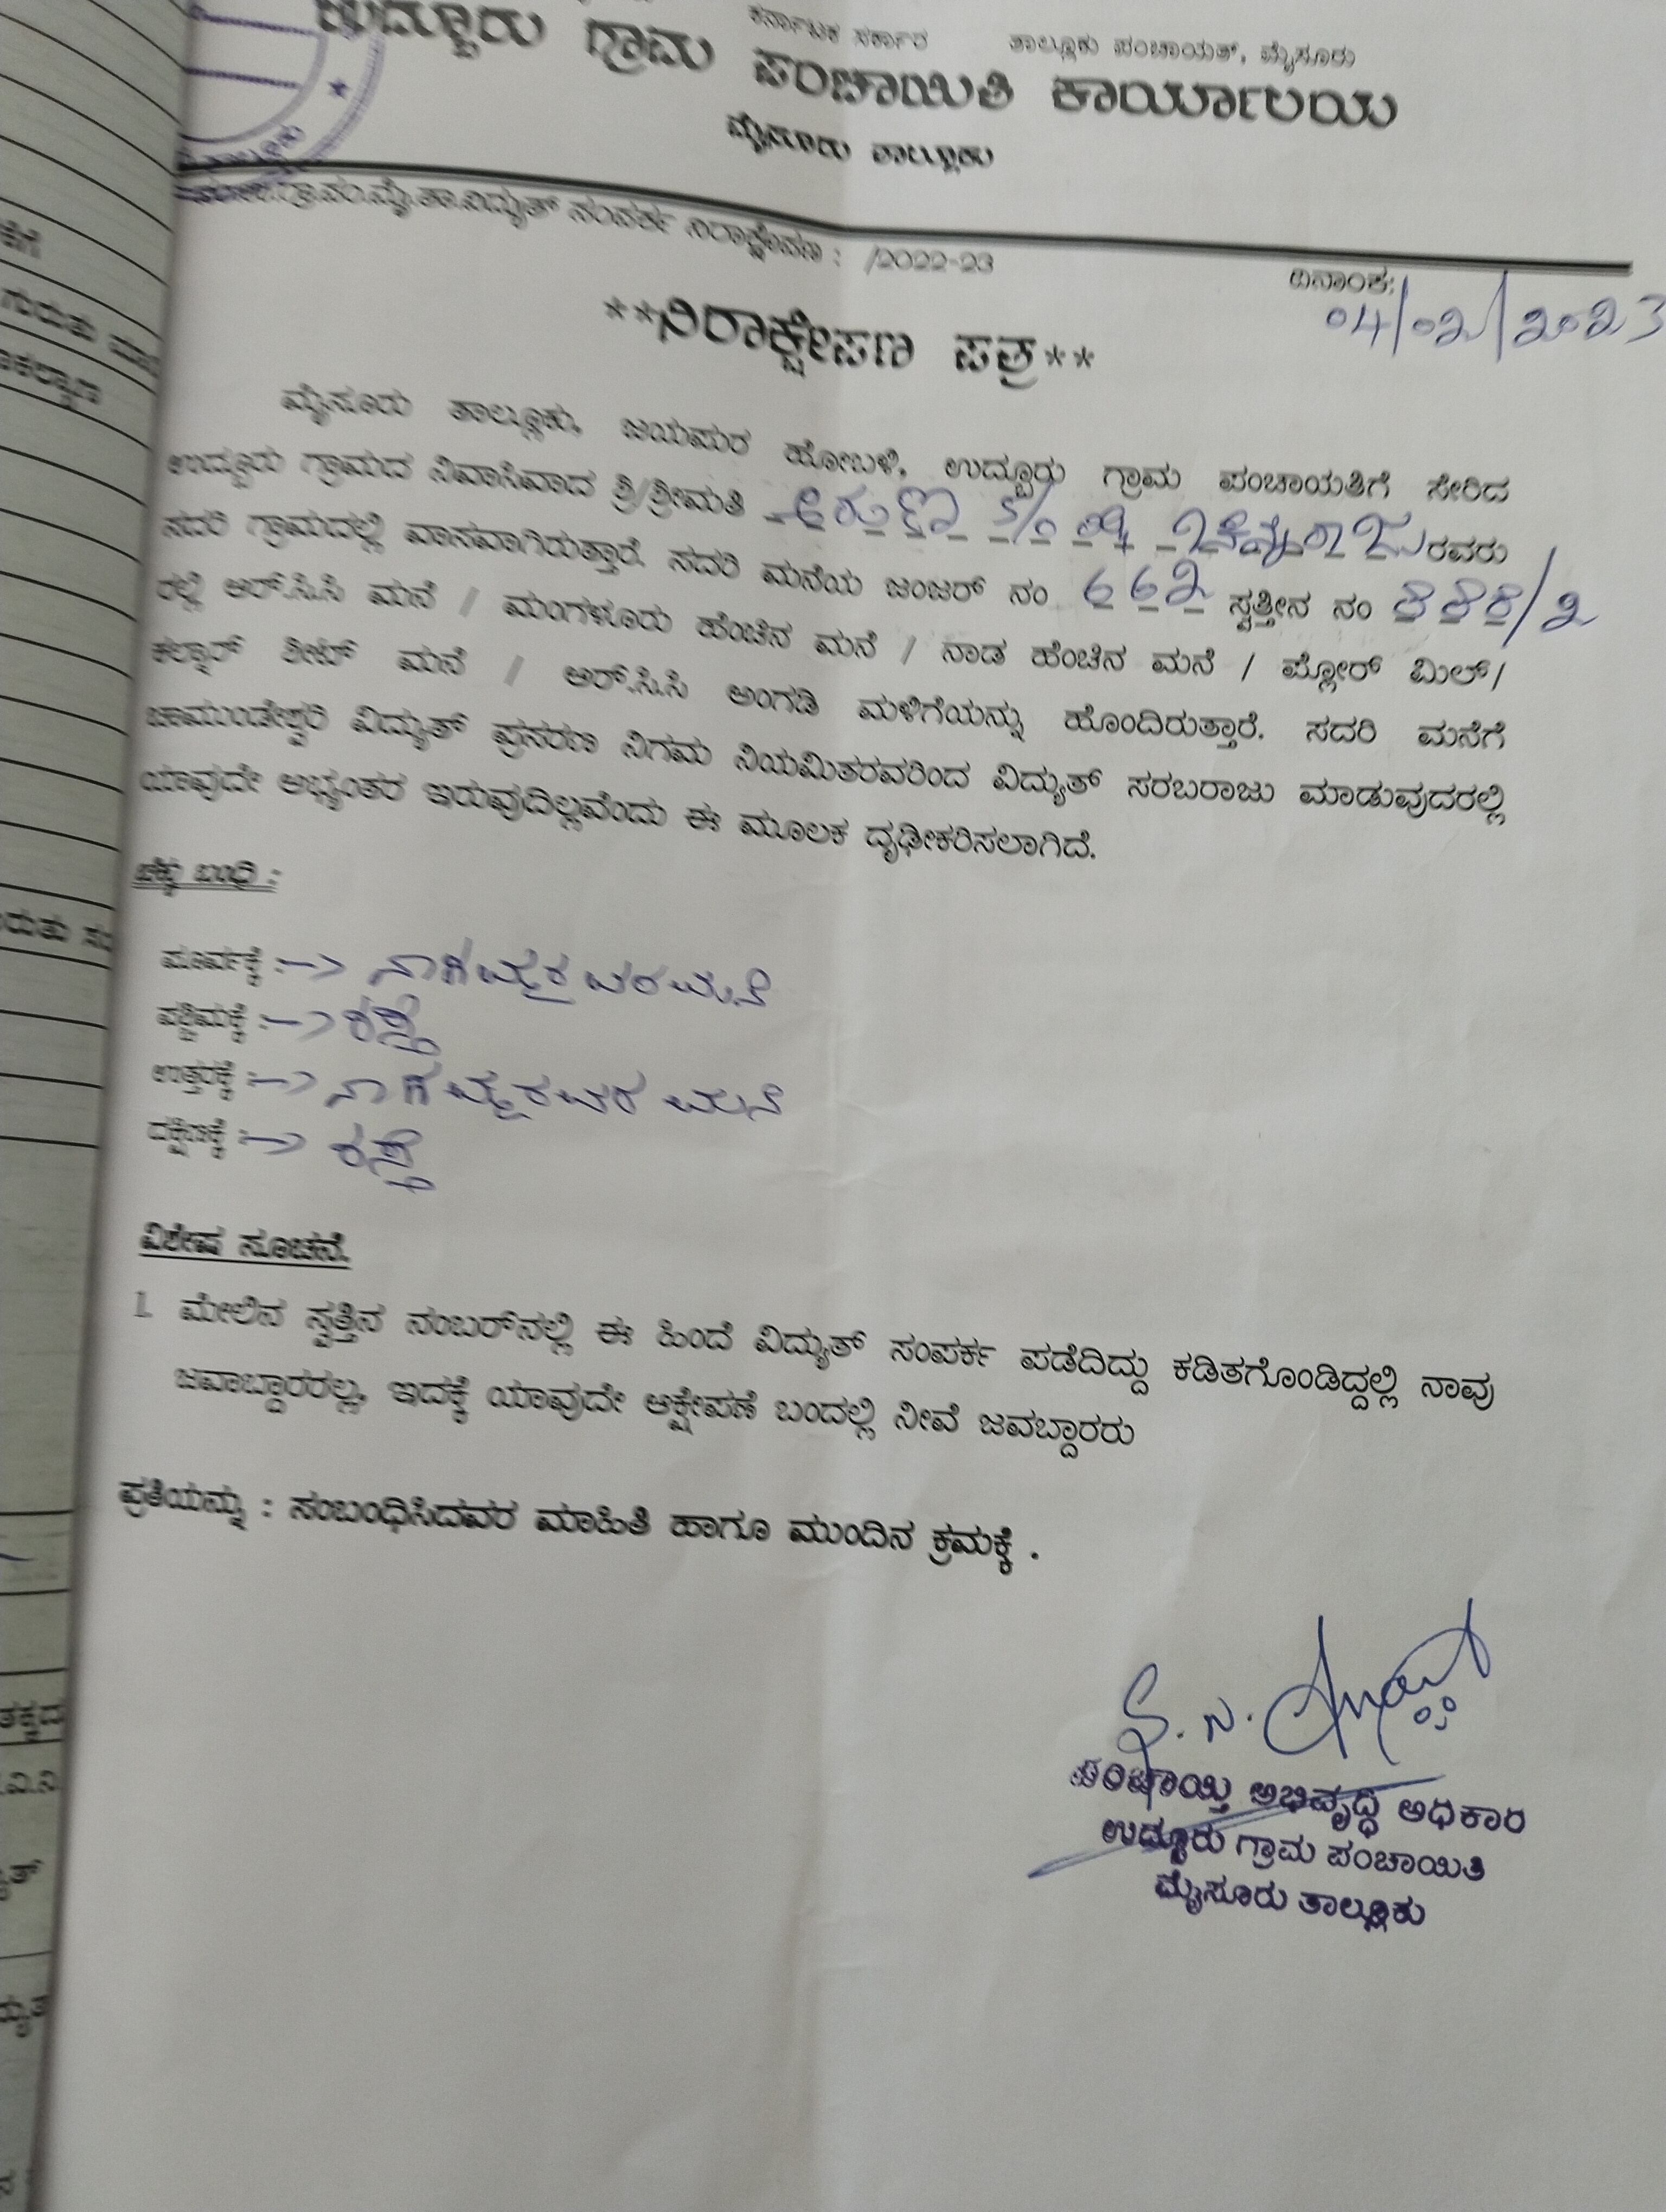 ಕರ್ನಾಟಕ ಸರ್ಕಾರ ತಾಲ್ಲೂಕು ಪಂಚಾಯತ್, ಮೈಸೂರು
ಉದ್ಬೂರು ಗ್ರಾಮ ಪಂಚಾಯಿತಿ ಕಾರ್ಯಾಲಯ
ಮೈಸೂರು ತಾಲ್ಲೂಕು
ಗ್ರಾ.ಪಂ.ಮೈ.ತಾ.ವಿದ್ಯುತ್ ಸಂಪರ್ಕ ನಿರಾಕ್ಷೇಪಣ : /2022-23
ದಿನಾಂಕ:
04/02/2023
**ನಿರಾಕ್ಷೇಪಣ ಪತ್ರ**
ಮೈಸೂರು ತಾಲ್ಲೂಕು, ಜಯಪುರ ಹೋಬಳಿ, ಉದ್ಬೂರು ಗ್ರಾಮ ಪಂಚಾಯತಿಗೆ ಸೇರಿದ
ಉದ್ಬೂರು ಗ್ರಾಮದ ನಿವಾಸಿಯಾದ ಶ್ರಿ/ಶ್ರೀಮತಿ S/o ರವರು
ಸದರಿ ಗ್ರಾಮದಲ್ಲಿ ವಾಸವಾಗಿರುತ್ತಾರೆ. ಸದರಿ ಮನೆಯ ಜಂಜರ್ ನಂ 662 ಸ್ವತ್ತೀನ ನಂ
ರಲ್ಲಿ ಆರ್.ಸಿ.ಸಿ ಮನೆ / ಮಂಗಳೂರು ಹೆಂಚಿನ ಮನೆ / ನಾಡ ಹೆಂಚಿನ ಮನೆ / ಪ್ಲೋರ್ ಮಿಲ್/
ಕಲ್ನಾರ್ ಶೀಟ್ ಮನೆ / ಆರ್.ಸಿ.ಸಿ ಅಂಗಡಿ ಮಳಿಗೆಯನ್ನು ಹೊಂದಿರುತ್ತಾರೆ. ಸದರಿ ಮನೆಗೆ
ಚಾಮುಂಡೇಶ್ವರಿ ವಿದ್ಯುತ್ ಪ್ರಸರಣ ನಿಗಮ ನಿಯಮಿತರವರಿಂದ ವಿದ್ಯುತ್ ಸರಬರಾಜು ಮಾಡುವುದರಲ್ಲಿ
ಯಾವುದೇ ಅಭ್ಯಂತರ ಇರುವುದಿಲ್ಲವೆಂದು ಈ ಮೂಲಕ ದೃಢೀಕರಿಸಲಾಗಿದೆ.
ಚೆಕ್ಕು ಬಂಧಿ :
ಪೂರ್ವಕ್ಕೆ :—> ನಾಗಮ್ಮರವರ ಮನೆ
ಪಶ್ಚಿಮಕ್ಕೆ :—> ರಸ್ತೆ
ಉತ್ತರಕ್ಕೆ :—> ನಾಗಮ್ಮರವರ ಮನೆ
ದಕ್ಷಿಣಕ್ಕೆ :—> ರಸ್ತೆ
ವಿಶೇಷ ಸೂಚನೆ.
1. ಮೇಲಿನ ಸ್ವತ್ತಿನ ನಂಬರ್‌ನಲ್ಲಿ ಈ ಹಿಂದೆ ವಿದ್ಯುತ್ ಸಂಪರ್ಕ ಪಡೆದಿದ್ದು ಕಡಿತಗೊಂಡಿದ್ದಲ್ಲಿ ನಾವು
ಜವಾಬ್ದಾರರಲ್ಲ, ಇದಕ್ಕೆ ಯಾವುದೇ ಆಕ್ಷೇಪಣೆ ಬಂದಲ್ಲಿ ನೀವೆ ಜವಬ್ದಾರರು
ಪ್ರತಿಯನ್ನು : ಸಂಬಂಧಿಸಿದವರ ಮಾಹಿತಿ ಹಾಗೂ ಮುಂದಿನ ಕ್ರಮಕ್ಕೆ .
ಪಂಚಾಯ್ತಿ ಅಭಿವೃದ್ಧಿ ಅಧಿಕಾರಿ
ಉದ್ಬೂರು ಗ್ರಾಮ ಪಂಚಾಯಿತಿ
ಮೈಸೂರು ತಾಲ್ಲೂಕು